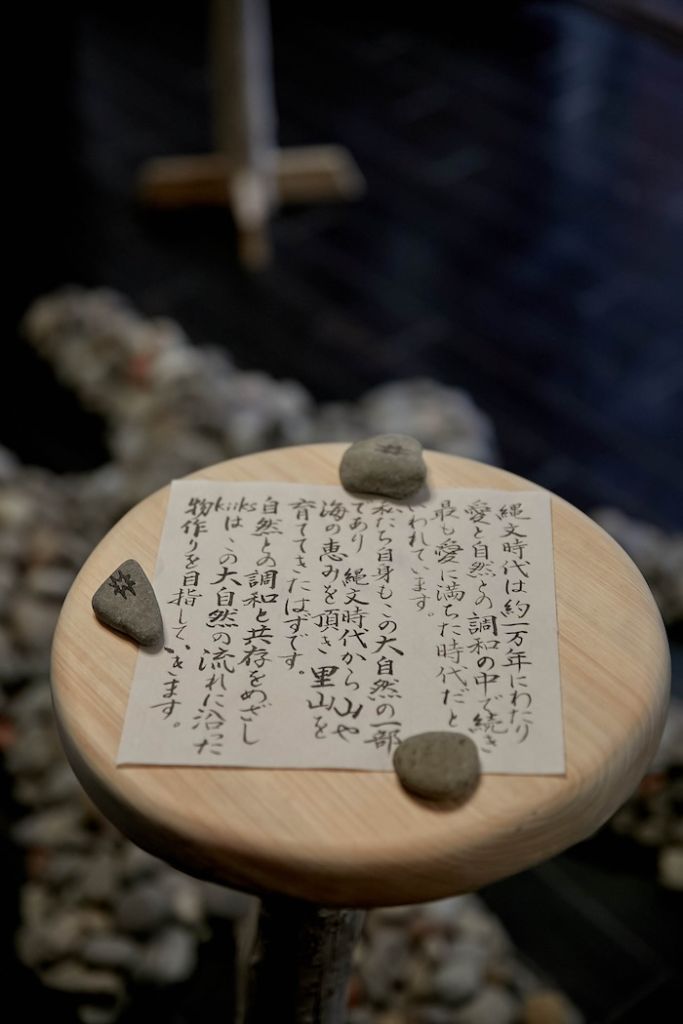 縄文時代は約一万年にわたり
愛と自然との調和の中で続き
最も愛に満ちた時代だと
いわれています。
私たち自身もこの大自然の一部
であり 縄文時代から山や
海の恵みを頂き里山を
育ててきたはずです。
自然との調和と共存をめざし
kiiksは、この大自然の流れに沿った
物作りを目指していきます。